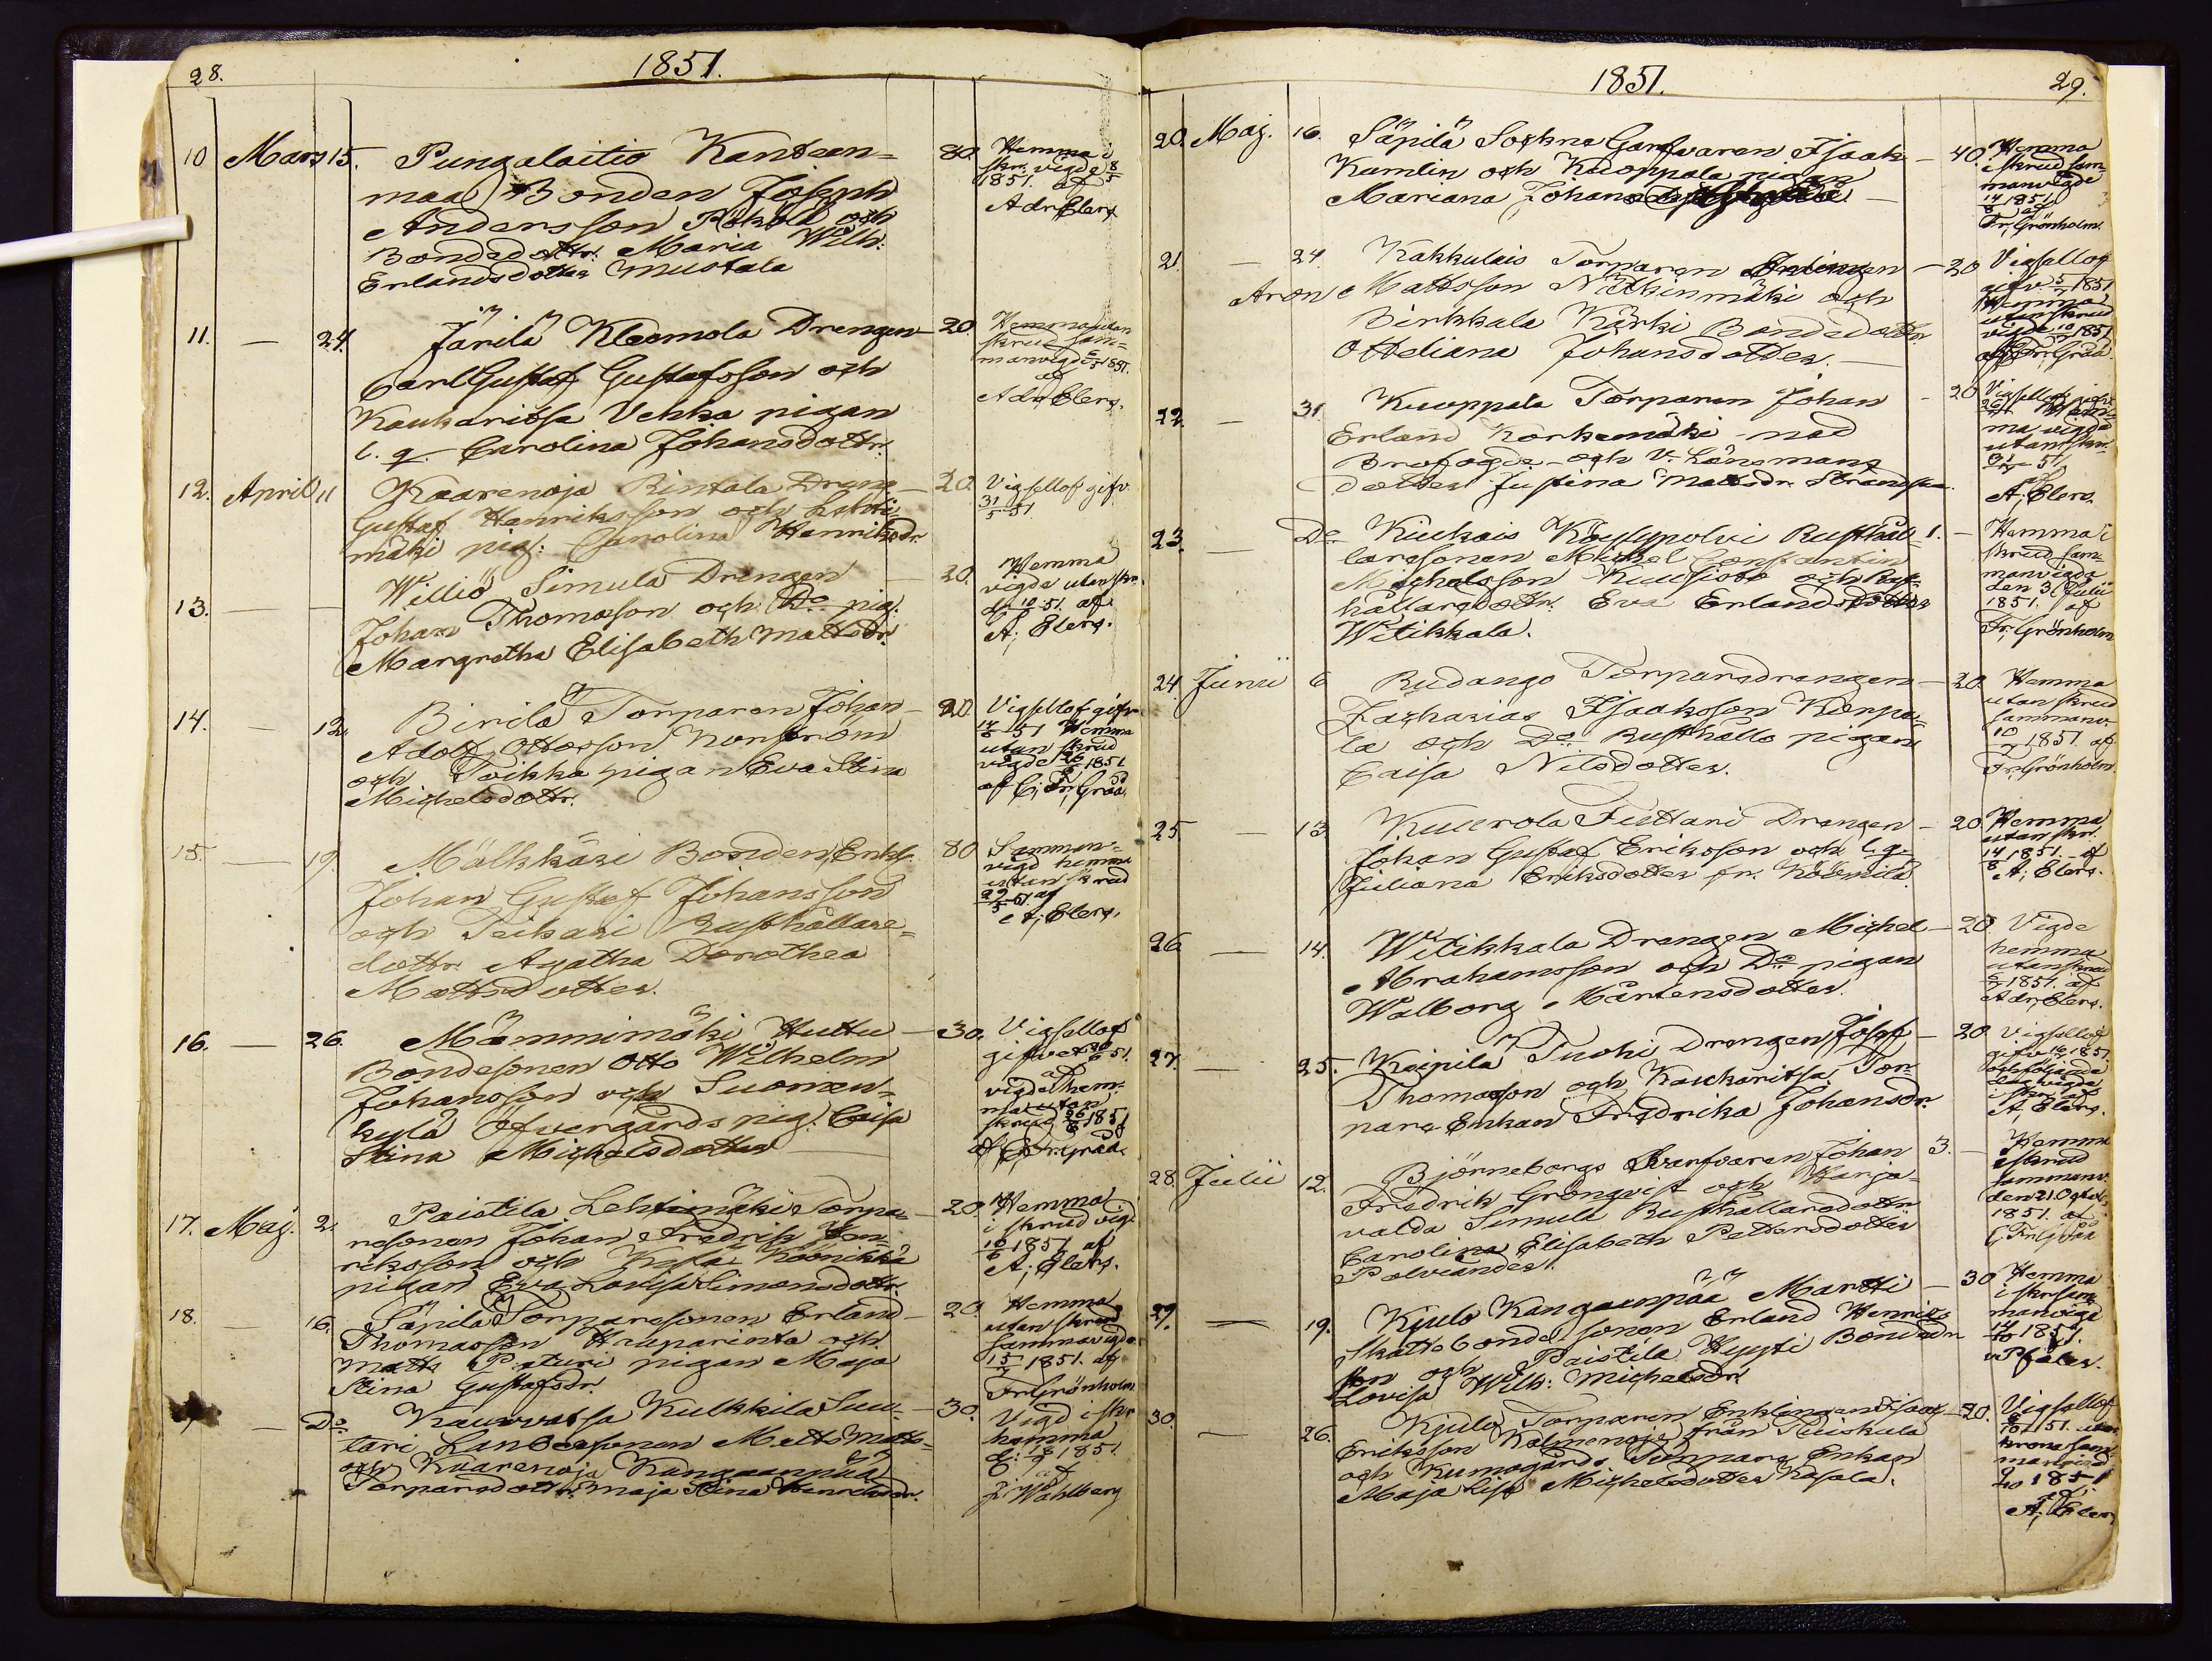 28.
1851.
10 Mars 15. Pungalaitio Kanteen=
maa Bonden Joseph
Andersson Pökölä och
Bondedottr. Maria Wilh.
Erlandsdotter Mustala
80. Hemma i
skr. vigde 8/5
1851. af
Adr. Elers
11. — 24. Järilä Kleemola Drengen
Carl Gustaf Gustafsson och
Kauharitsa Vekka pigan
l. q. Carolina Johansdottr.
20. Hemma utan
skrud sam=
manvigde
1851.
af
Adr. Elers.
12. April 11 Kaarenoja Rintala Dreng
Gustaf Henriksson och
mäki pig: Carolina Henriksdr.
20. Vigsellof gifv.
31/5 51.
13. — Williö Simula Drengen
Johan Thomasson och Do pig.
Margretha Elisabeth Mattsdr.
20. Hemma
vigde utan skr.
d. 10/6 51. af
A; Elers.
14. — 12. Birilä Torparen Johan
Adolf Ottosson Korström
och Toikka pigan Eva Stina
Michelsdottr.
20. Vigsellof gifv.
14/6 51 Hemma
utan skrud
vigde 1851.
af C; Fr; Gråå.
15. — 19. Mälkkäri Bonden Enkl.
Johan Gustaf Johansson
och Teikari Rusthållare=
dottr. Agatha Dorothea
Mattsdotter.
80 Samman=
vigd hemma
utan skrud
29/5 51. af
A; Elers.
16. — 26. Mämmimäki Huttu
Bondesonen Otto Wilhelm
Johansson och Suomen=
kylä Öfvergårds pig. Caisa
Stina Michelsdotter
30. Vigsellof
gifvet
51.
vigde hem=
ma utan
skrud 26/6 1851
af C. Fr. Gråå.
17. Maj. 2. Paistila Lehtimäki Torpa=
resonen Johan Fredrik Hen=
riksson och
pigan Eva Lovisa Simonsdottr.
20 Hemma
i skrud vigd
10/6 1851 af
A; Elers.
18. — 16. Säpilä Torparesonen Erland
Thomasson Hauparinta och
Matts Paturi pigan Maja
Stina Gustafsdr.
20. Hemma
utan skrud
sammanvigde
15/ 1851. af
Fr. Grönholm.
— Do Kauvatsa Kulkkila Suu=
tari Landbosonen Matts Matts=
och Kaarenoja Kangaanpää
Torparedottr. Maja Stina Henriksdr.
30. Vigd i skr
hemma
d. 18/ 1851.
af
J; Wahlberg
1851.
29.
20. Maj. 16. Säpilä Sockne Garfvaren Isaak
Kumlin och Kuoppala pigan
Mariana Johansdotter
40. Hemma
i skrud sam=
manvigde
14/8 1851.
af
Fr; Grönholm.
21. — 24. Kakkulais Torparen Enklingen
Aron Mattsson Nätkinmäki och
Birkkala Kärki Bondedottr
Otteliana Johansdotter.
20 Vigsellof
gifv 5/ 1851
Hemma
utan skrud
vigde 10/ 1851
af C. Fr. Gråå.
22. — 31. Kuoppala Torparen Johan
Erland Korkemäki med
Brofogde- och V. Länsmans
dotter Justina Mattsdr. Strandska
20 Vigsellof gifv.
Hem=
ma vigde
utan skr.
51.
af
A; Elers.
23. — Do Kiukais Köylypolvi Rusthål=
laresonen Michel Constantin
Michelsson Kuusisto och Rust=
hållaredottr. Eva Erlandsdotter
Witikkala.
1. Hemma i
skrud sam=
manvigde
den 3 Julii
1851. af
Fr; Grönholm
24. Junii 6 Rudango Torparedrengen
Zacharias Isaaksson Kerpa=
la och Do Rusthålls pigan
Caisa Nilsdotter.
20 Hemma
utan skrud
sammanv.
10/ 1851. af
Fr; Grönholm.
25 — 13 Kuurola Tuttari Drengen
Johan Gustaf Eriksson och l. q.
Juliana Eriksdotter fr. Köömilä.
20 Hemma
utan skr.
14/8 1851. af
A; Elers.
26 — 14. Witikkala Drengen Michel
Abrahamsson och Do pigan
Walborg Mårtensdotter.
20 Vigde
hemma
utan skrud
1851. af
Adr. Elers.
27. — 25. Keipilä Tuohi Drengen Josef
Thomasson och Kauharitsa Tor=
pare Enkan Fredrika Johansdr.
20 Vigsellof
gifv 1851.
och följande
dag vigde
i skr. af
A; Elers.
28. Julii 12. Björneborgs Svarfvaren Johan
Fredrik Grönqvist och Harja=
valda Simula Rusthållaredottr
Carolina Elisabeth Pettersdotter
Polviander.
3. Hemma
i skrud
sammanv.
den 21 Octob.
1851. af
C. Fr. Gråå
29. — 19. Kjulo Kangaanpää Martti
Skattebonde-sonen Erland Henriks
son och Paistila Hyyti Bondedr
Lovisa Wilh: Michelsdr.
30 Hemma
i skr. sam=
manvigd
14/10 1851.
v Pfaler.
30. — 26. Kjulo Torparen Enklingen Isaac
Eriksson Kalmenoja från Tuiskula
och Kumogårds Torpare Enkan
Maja Lisa Michelsdotter Kasala.
20. Vigsellof
51. utan
krona sam=
manvigd
1851
af
A; Elers